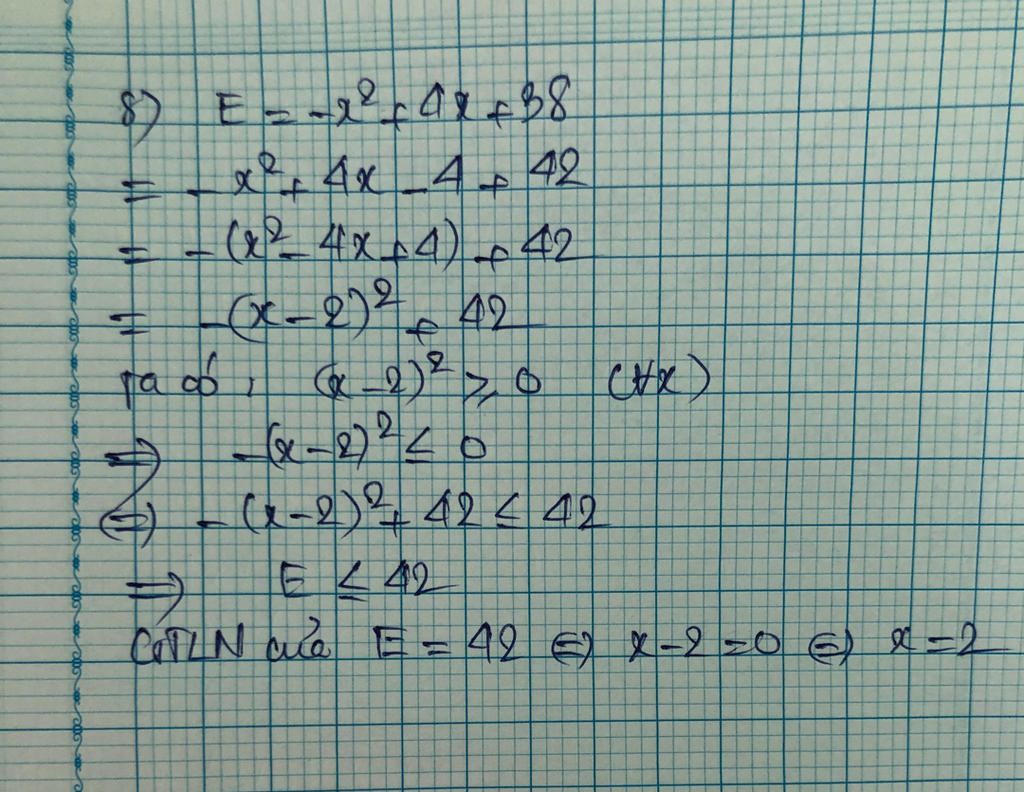 8) E = -x² + 4x + 38
= -x² + 4x - 4 + 42
= -(x² - 4x + 4) + 42
= -(x - 2)² + 42
Ta có: (x - 2)² ≥ 0 (∀x)
⇒ -(x - 2)² ≤ 0
⇔ -(x - 2)² + 42 ≤ 42
⇒ E ≤ 42
GTLN của E = 42 ⇔ x - 2 = 0 ⇔ x = 2